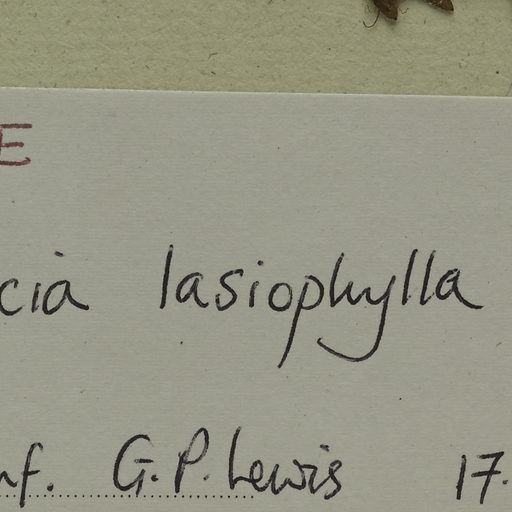 E
cia lasiophylla
nf. G.P. Lewis 17.